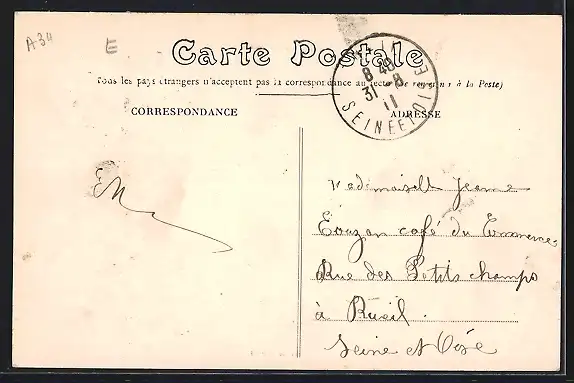 A34
E
Carte Postale
Tous les pays étrangers n'acceptent pas la correspondance au recto (Se renseigner à la Poste)
8 45
31 - 8
11
SEINE ET OISE
CORRESPONDANCE
ADRESSE
EM
Mademoiselle Jeanne
café du Commerce
Rue des Petits champs
à Rueil.
Seine et Oise